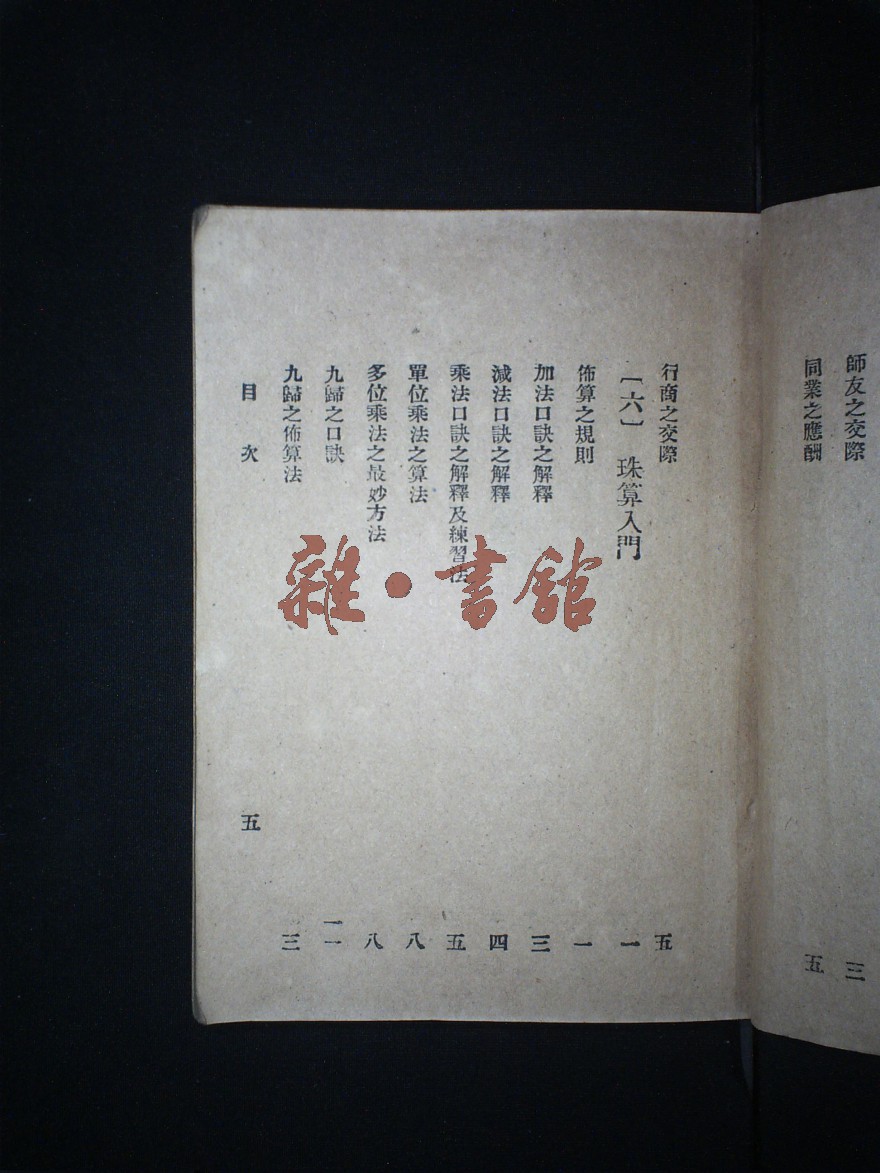 師友之交際 三
同業之應酬 五
行商之交際 五
〔六〕 珠算入門 一
佈算之規則 一
加法口訣之解釋 三
減法口訣之解釋 四
乘法口訣之解釋及練習法 五
單位乘法之算法 八
多位乘法之最妙方法 八
九歸之口訣 一一
九歸之佈算法 三
目次 五
雜·書館